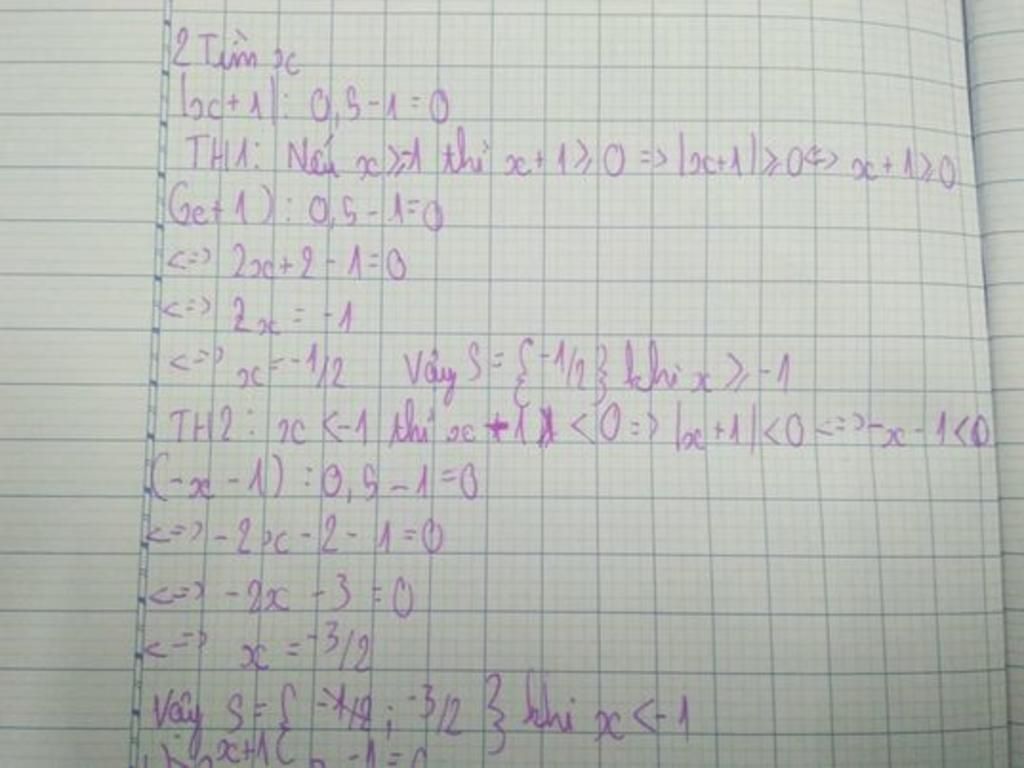 2 Tìm x
|x+1| : 0,5 - 1 = 0
TH1: Nếu x ≥ -1 thì x + 1 ≥ 0 => |x+1| ≥ 0 <=> x + 1 ≥ 0
(x+1) : 0,5 - 1 = 0
<=> 2x + 2 - 1 = 0
<=> 2x = -1
<=> x = -1/2 Vậy S = { -1/2 } khi x ≥ -1
TH2: x < -1 thì x + 1 < 0 => |x+1| < 0 <=> -x - 1 < 0
(-x - 1) : 0,5 - 1 = 0
<=> -2x - 2 - 1 = 0
<=> -2x - 3 = 0
<=> x = -3/2
Vậy S = { -1/2 ; -3/2 } khi x < -1
x+1 - 1 = 0